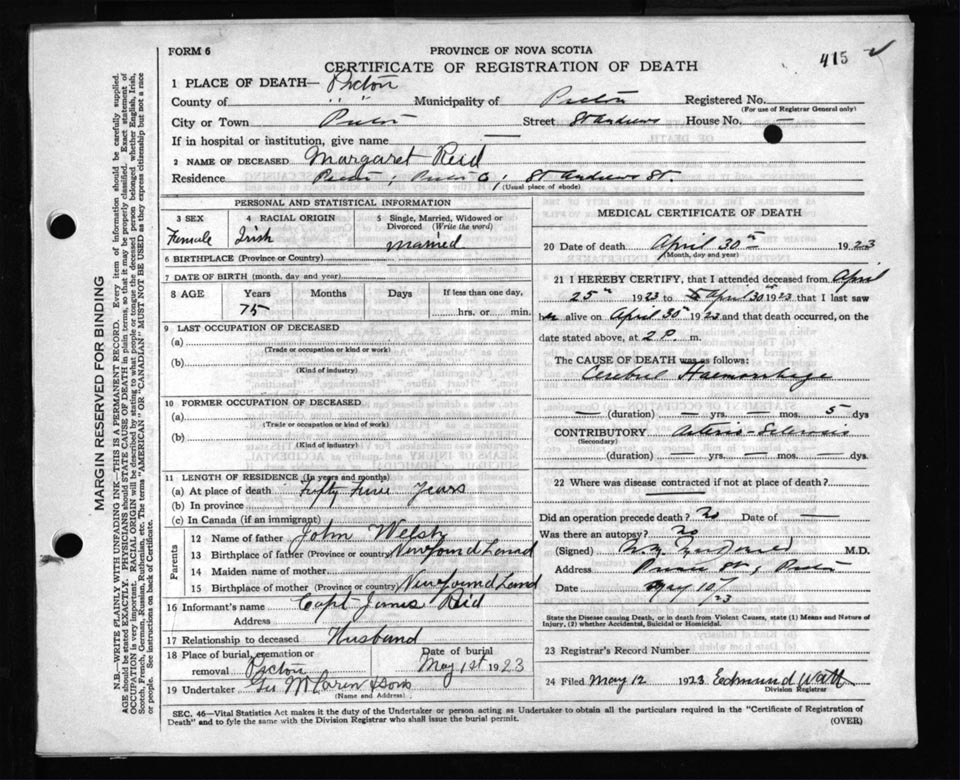 FORM 6
PROVINCE OF NOVA SCOTIA
415
CERTIFICATE OF REGISTRATION OF DEATH
1 PLACE OF DEATH— Pictou
County of " " Municipality of Pictou Registered No.
(For use of Registrar General only)
City or Town Pictou Street St Andrews House No. —
If in hospital or institution, give name —
2 NAME OF DECEASED Margaret Reid
Residence Pictou, Pictou Co, St. Andrews St.
(Usual place of abode)
PERSONAL AND STATISTICAL INFORMATION
3 SEX
Female
4 RACIAL ORIGIN
Irish
5 Single, Married, Widowed or Divorced (Write the word)
Married
6 BIRTHPLACE (Province or Country)
7 DATE OF BIRTH (month, day and year)
8 AGE Years Months Days If less than one day,
75 hrs. or min.
9 LAST OCCUPATION OF DECEASED
(a)
(Trade or occupation or kind or work)
(b)
(Kind of industry)
10 FORMER OCCUPATION OF DECEASED
(a)
(Trade or occupation or kind of work)
(b)
(Kind of industry)
11 LENGTH OF RESIDENCE (In years and months)
(a) At place of death Fifty Five Years
(b) In province
(c) In Canada (if an immigrant)
Parents
12 Name of father John Welsh
13 Birthplace of father (Province or country) Newfound Land
14 Maiden name of mother
15 Birthplace of mother (Province or country) Newfound Land
16 Informant's name Capt James Reid
Address
17 Relationship to deceased Husband
18 Place of burial, cremation or removal Pictou
Date of burial
May 1st 1923
19 Undertaker & Sons
(Name and Address)
MEDICAL CERTIFICATE OF DEATH
20 Date of death April 30th 1923
(Month, day and year)
21 I HEREBY CERTIFY, that I attended deceased from April
25th 1923 to April 30 1923 that I last saw
her alive on April 30 1923 and that death occurred, on the
date stated above, at 2 P m.
The CAUSE OF DEATH was as follows:
Cerebral Haemorrhage
— (duration) — yrs. — mos. 5 dys
CONTRIBUTORY Arterio-Sclerosis
(Secondary)
(duration) — yrs. — mos. — dys
22 Where was disease contracted if not at place of death?
Did an operation precede death? No Date of —
Was there an autopsy? No
(Signed) M.D.
Address Prince St, Pictou
Date May 10/23
State the Disease causing Death, or in death from Violent Causes, state (1) Means and Nature of
Injury, (2) whether Accidental, Suicidal or Homicidal.
23 Registrar's Record Number
24 Filed May 12 1923 Edmund Watt
Division Registrar
SEC. 46—Vital Statistics Act makes it the duty of the Undertaker or person acting as Undertaker to obtain all the particulars required in the "Certificate of Registration of
Death" and to fyle the same with the Division Registrar who shall issue the burial permit.
(OVER)
MARGIN RESERVED FOR BINDING
N.B.—WRITE PLAINLY WITH UNFADING INK—THIS IS A PERMANENT RECORD. Every item of information should be carefully supplied.
AGE should be stated EXACTLY. PHYSICIANS should STATE CAUSE OF DEATH in plain terms, so that it may be properly classified. Exact statement of
OCCUPATION is very important. RACIAL ORIGIN will be described by stating to what people or tongue the deceased person belonged whether English, Irish,
Scotch, French, German, Russian, Ruthenian, etc. The terms "AMERICAN" OR "CANADIAN" MUST NOT BE USED as they express citizenship but not a race
or people. See instructions on back of Certificate.